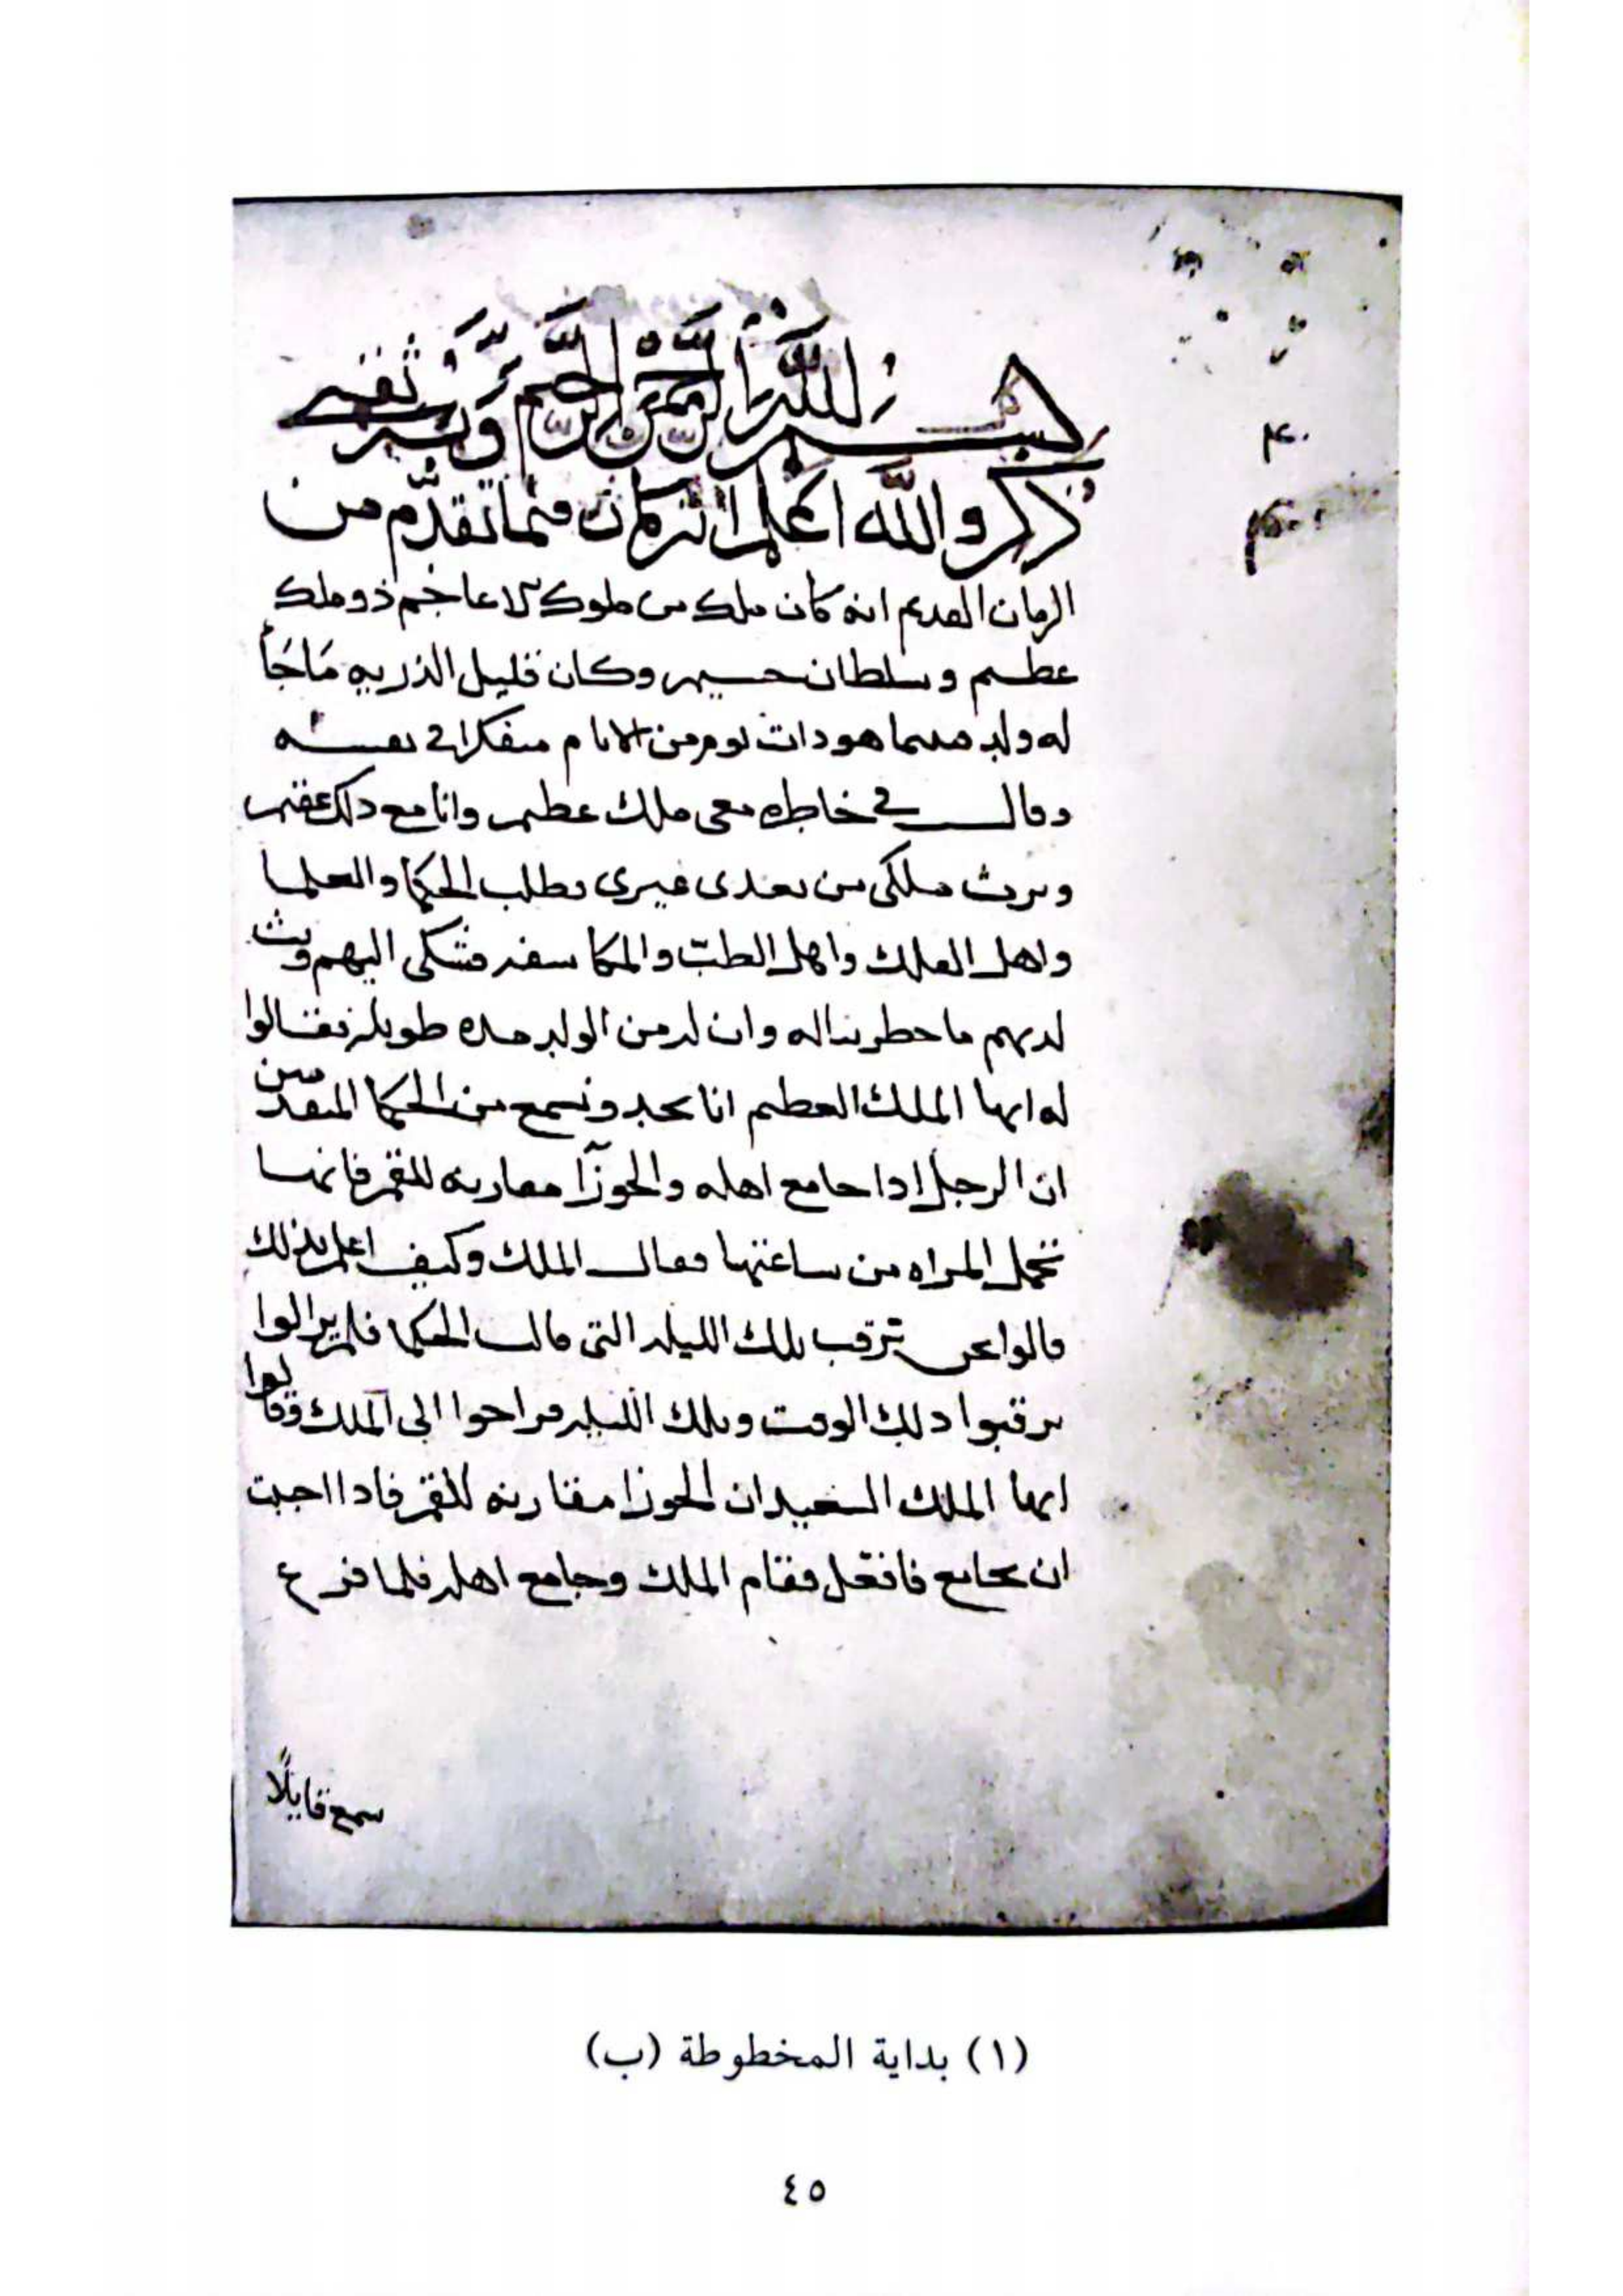 بسم الله الرحمن الرحيم وبه ثقتي
ذكر والله اعلم انه كان فيما تقدّم من
الزمان القديم انه كان ملك من ملوك الاعاجم ذو ملك
عظيم وسلطان جسيم وكان قليل الذريه مَاجَأ
له ولد فبينما هو ذات يوم من الايام متفكرا في نفسه
وقال في خاطره معي ملك عظيم وانا مع ذلك عقيم
ويرث ملكي من بعدي غيري فطلب الحكما والعلما
واهل الفلك واهل الطبّ والمكاسفه فشكى اليهم وبث
لديهم ما خطر بباله وان له من الولد مده طويله فقالوا
له ايها الملك العظيم انا نجد ونسمع من الحكما المتقدمين
ان الرجل اذا جامع اهله والجوزآ مقارنه للقمر فانها
تحمل المراه من ساعتها فقال الملك وكيف اعلم بذلك
قالوا نحن نترقب تلك الليله التي قالت الحكما فلم يزالوا
يرقبوا ذلك الوقت وتلك الليله فراحوا الى الملك وقالوا
ايها الملك السعيد ان الجوزا مقارنه للقمر فاذا احببت
ان تجامع فافعل فقام الملك وجامع اهله فلما فرغ
سمع قايلًا
(١) بداية المخطوطة (ب)
٤٥